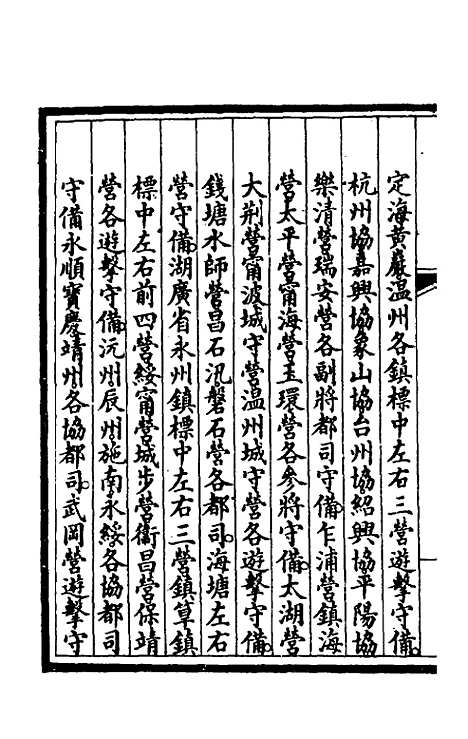 定海黃巖温州各鎮標中左右三營遊擊守備
杭州協嘉興協象山協台州協紹興協平陽協
樂清營瑞安營各副將都司守備乍浦營鎮海
營太平營甯海營玉環營各參將守備太湖營
大荆營甯波城守營温州城守營各遊擊守備
錢塘水師營昌石汛磐石營各都司海塘左右
營守備湖廣省永州鎮標中左右三營鎮筸鎮
標中左右前四營綏甯營城步營衞昌營保靖
營各遊擊守備沅州辰州施南永綏各協都司
守備永順寶慶靖州各協都司武岡營遊擊守